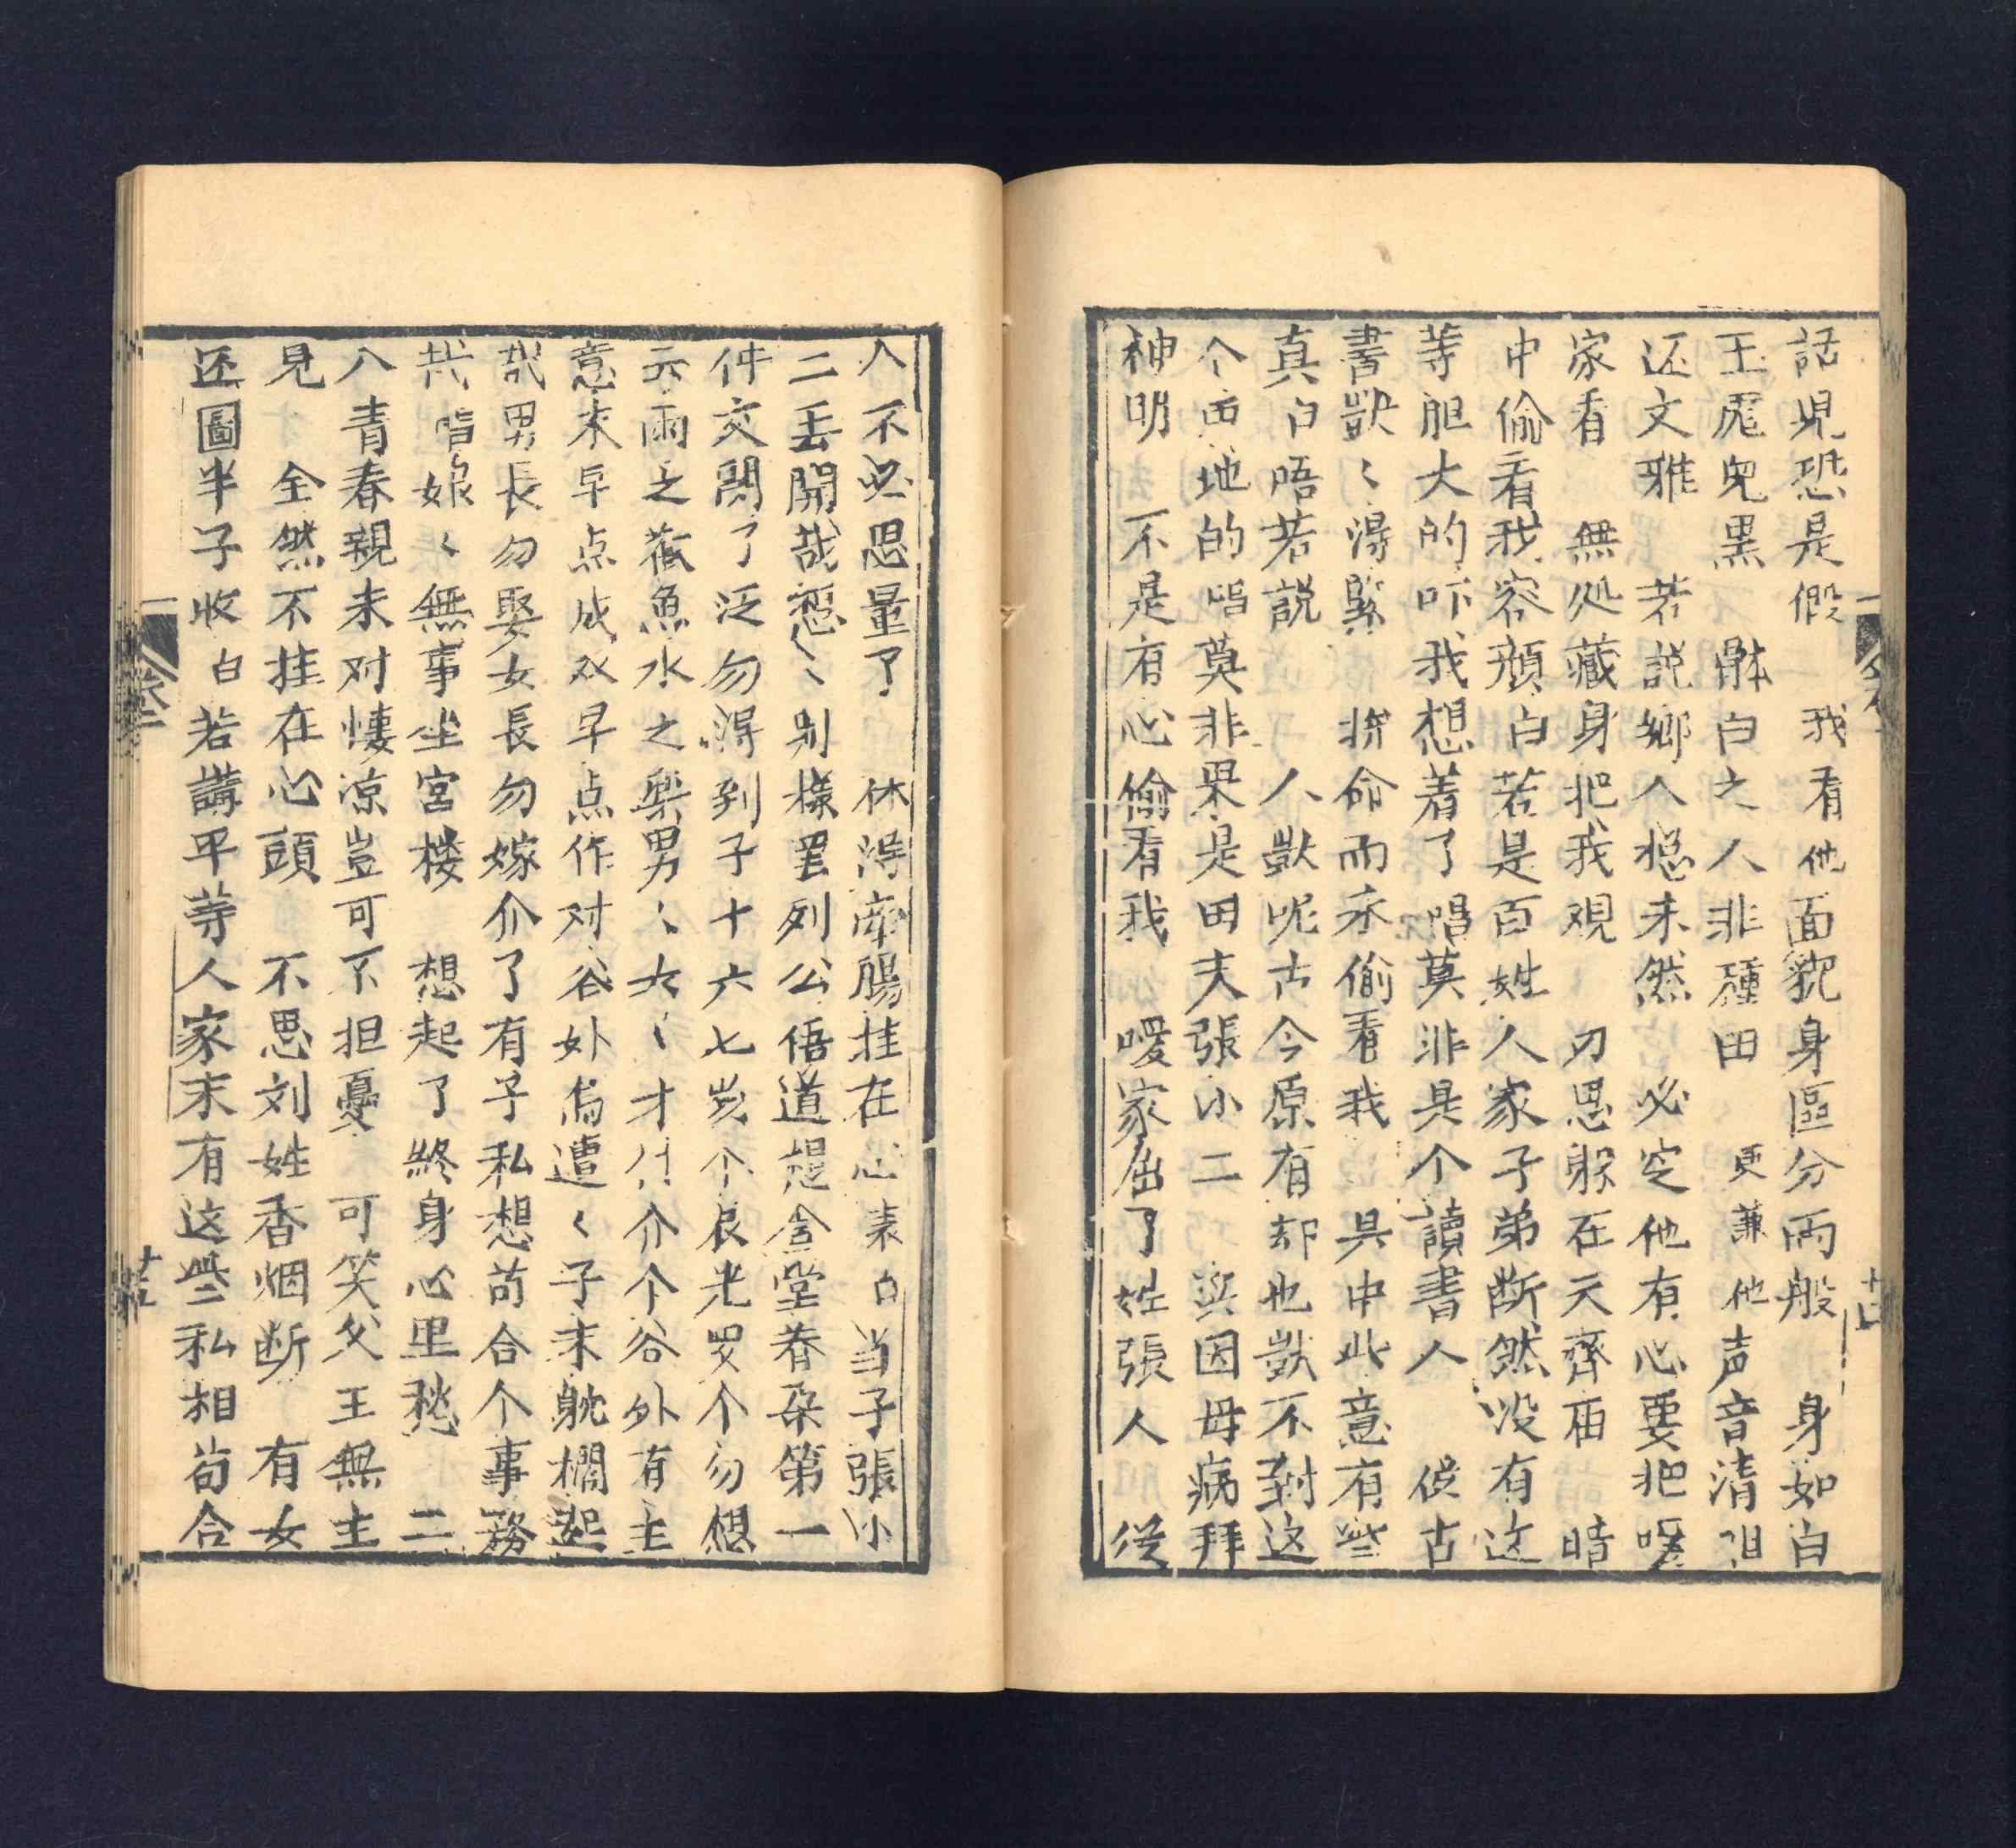 話児恐是假　我看他面貌身區分両般　身如白
玉尾児黑　骵白之人非種田　更兼他声音清
还文雅　若説鄉人総未然　必定他有心要把
家看　無処藏身把我观　刃思躱在天齊庙　暗
中偷看我容顔白若是百姓人家子弟断然没有这
等胆大的吓我想着了唱莫非具个讀書人　俟古
書獃〻得緊　拚命而来偷看我　具中此意有些
真白唔若説　人獃呢古今原有却也獃不到这
个田地的唱莫非果是田夫張小二　只因母病拜
神明　不是有心偷看我　噯家屈了姓張人　從
十四
人不必思量了　休得牵腸挂在心表白当子張小
二丢開哉想〻別樣罢列公悟道想念堂眷朶第一
件交関了泛勿得到子十六七岁个辰光罗个勿想
雨之藏魚水之樂男〻女〻才介个谷外有主
意未早点成双早点作对谷外為遭〻子未躭擱起
哉男長勿娶女長勿嫁介了有子私想苟合个事務
哉唱娘〻無事坐宮楼　想起了終身心里愁　二
八青春親未对悽凉豈可不担憂　可笑父王無主
見　全然不挂在心頭　不思刘姓香烟断　有女
还圖半子收白若講平等人家末有这些私相苟合
廿五